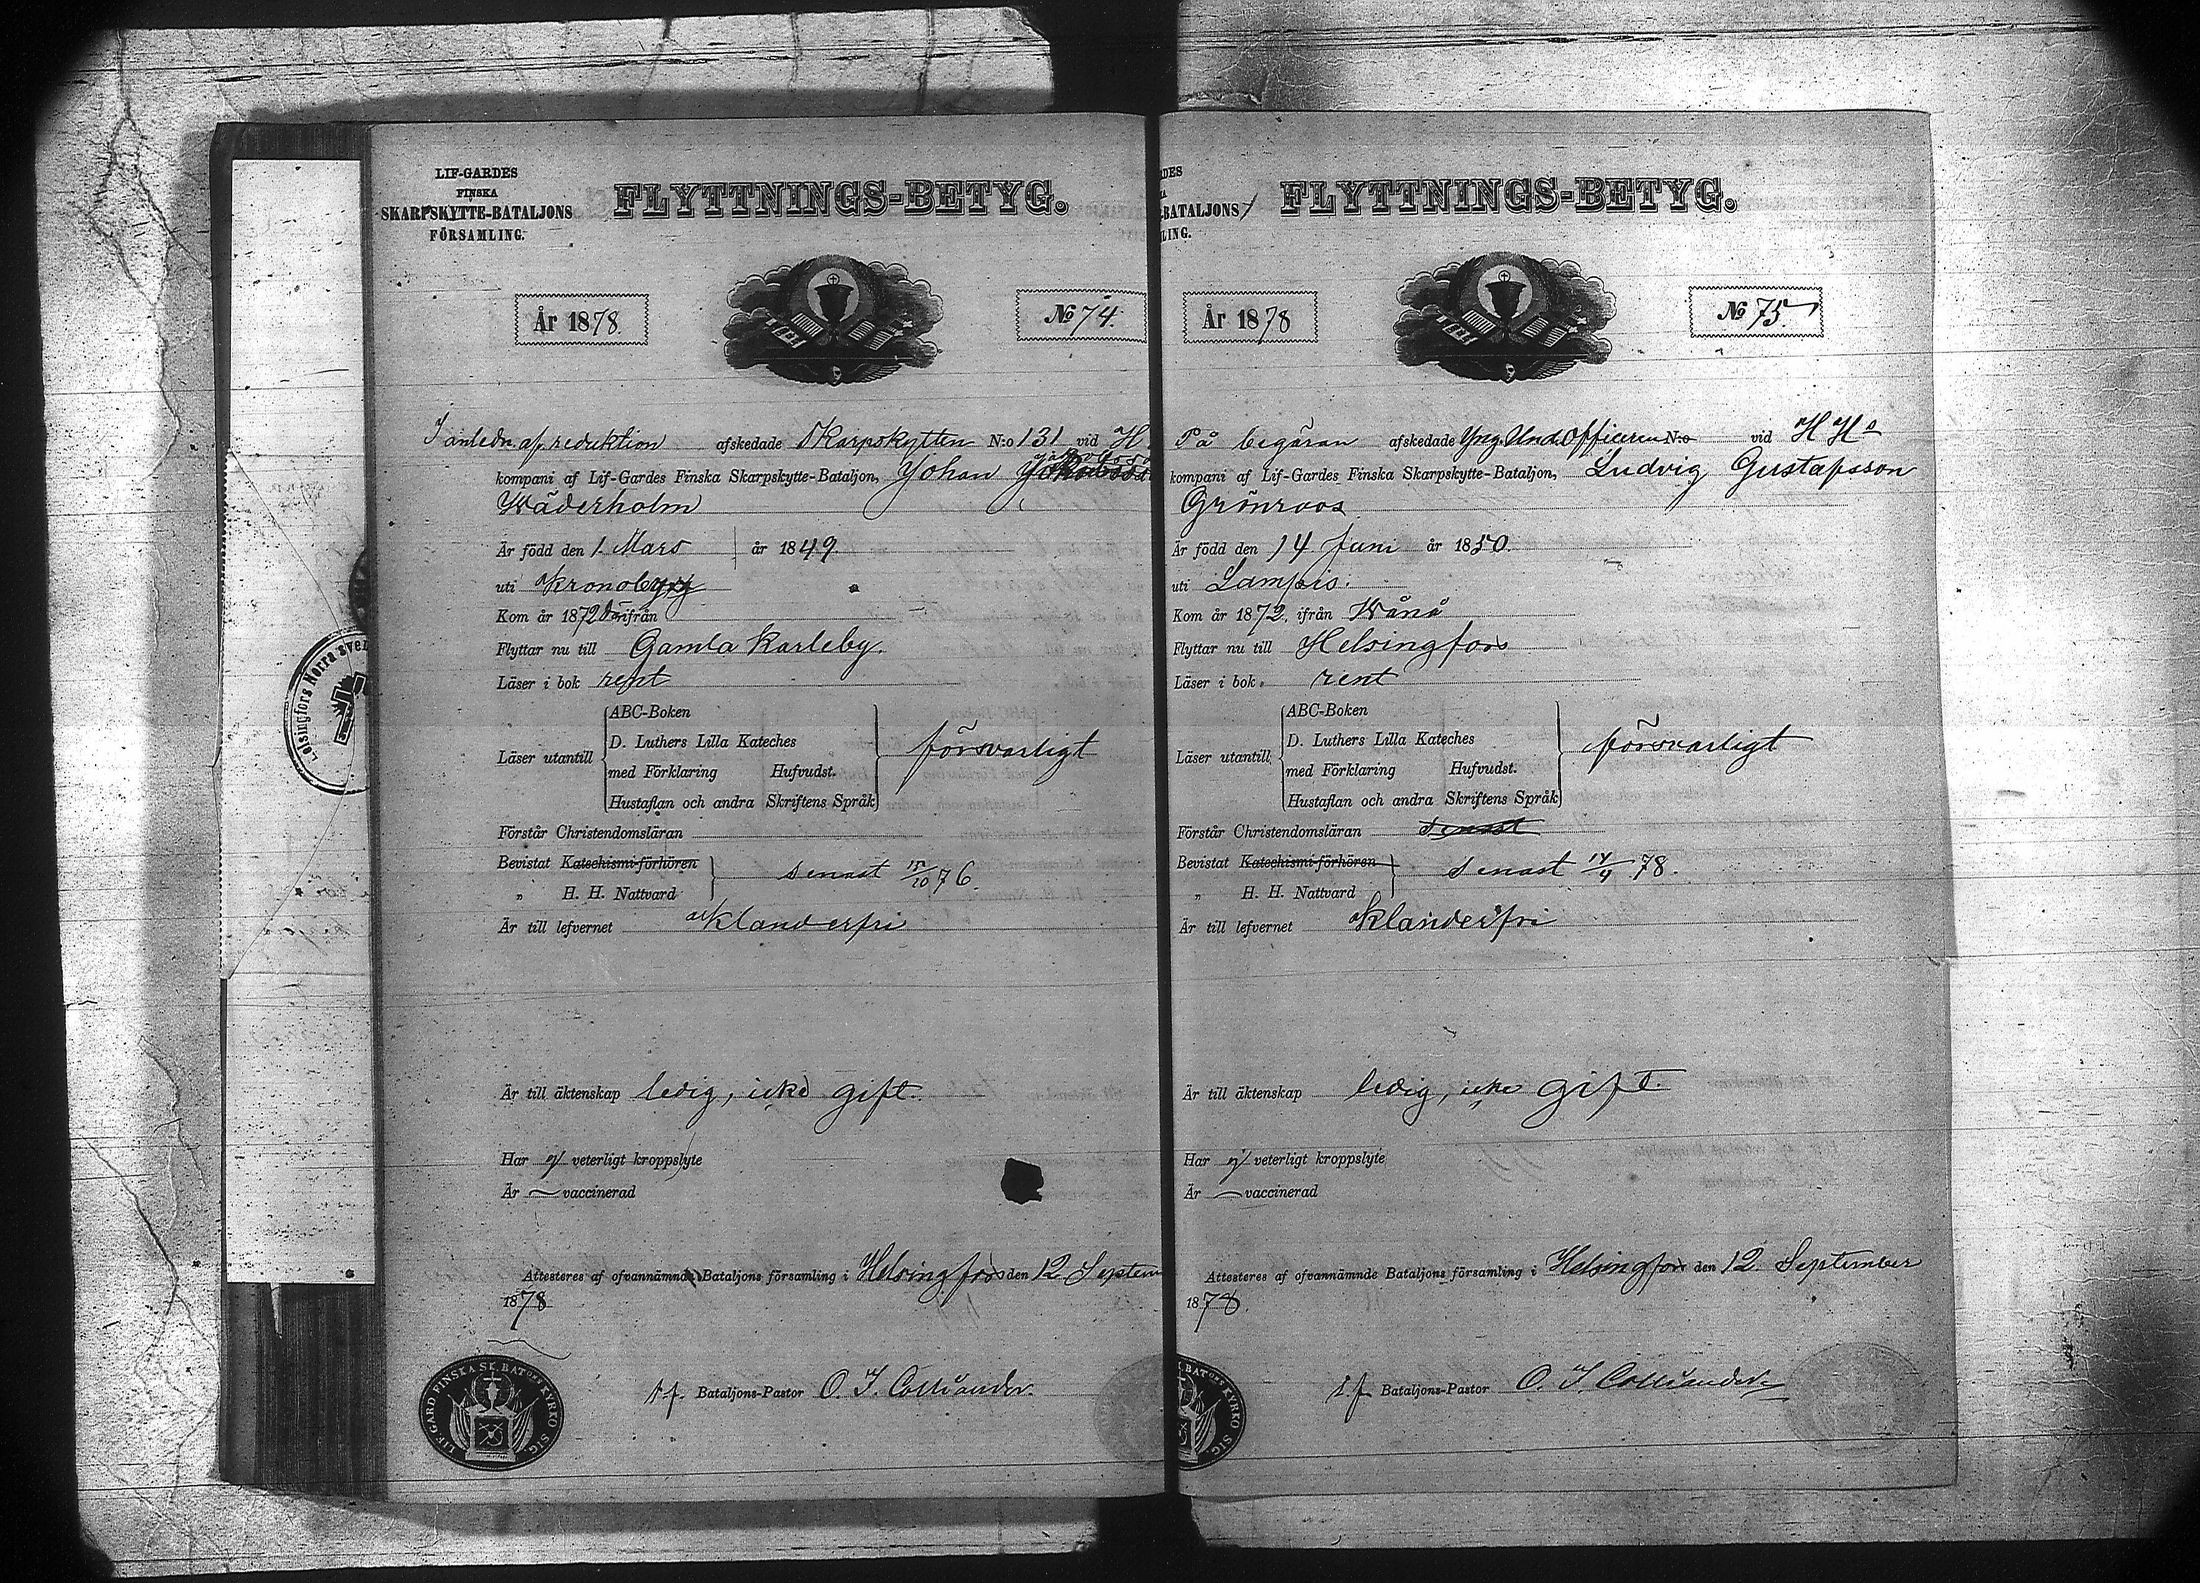 LIF-GARDES
FINSKA
SKARPSKYTTE-BATALJONS
FÖRSAMLING.
FLYTTNINGS-BETYG.
År 1878.
No 74.
I anledn. af reduktion afskedade Skarpskytten N:o 131 vid H
kompani af Lif-Gardes Finska Skarpskytte-Bataljon, Johan
Wäderholm
Är född den 1. Mars år 1849.
uti Kronoby
Kom år 1872 ifrån
Flyttar nu till Gamla Karleby.
Läser i bok rent
Läser utantill
ABC-Boken
D. Luthers Lilla Kateches
med Förklaring Hufvudst.
Hustaflan och andra Skriftens Språk
försvarligt
Förstår Christendomsläran
Bevistat Katechismi-förhören
„ H. H. Nattvard
senast 15/10 76.
Är till lefvernet oklanderfri
Är till äktenskap ledig, icke gift.
Har ej veterligt kroppslyte
Är vaccinerad
Attesteres af ofvannämnde Bataljons församling i Helsingfors den 12 Septem
1878
t.f. Bataljons-Pastor O. I. Colliander.
LIF-GARD FINSKA SK. BATONS KYRKO SIG.
Helsingfors Norra sve
RDES
BATALJONS
LING.
FLYTTNINGS-BETYG.
År 1878
No 75.
På begäran afskedade Yng. Und. Officeren N:o vid H Hs
kompani af Lif-Gardes Finska Skarpskytte-Bataljon, Ludvig Gustafsson
Grönroos
Är född den 14 Juni år 1850.
uti Lampis.
Kom år 1872, ifrån Wånå
Flyttar nu till Helsingfors
Läser i bok rent
Läser utantill
ABC-Boken
D. Luthers Lilla Kateches
med Förklaring Hufvudst.
Hustaflan och andra Skriftens Språk
försvarligt
Förstår Christendomsläran senast
Bevistat Katechismi-förhören
„ H. H. Nattvard
senast 14/4 78.
Är till lefvernet oklanderfri
Är till äktenskap ledig, icke gift.
Har ej veterligt kroppslyte
Är vaccinerad
Attesteres af ofvannämnde Bataljons församling i Helsingfors den 12 September
1878.
t.f. Bataljons-Pastor O. I. Colliander
BATONS KYRKO SIG.